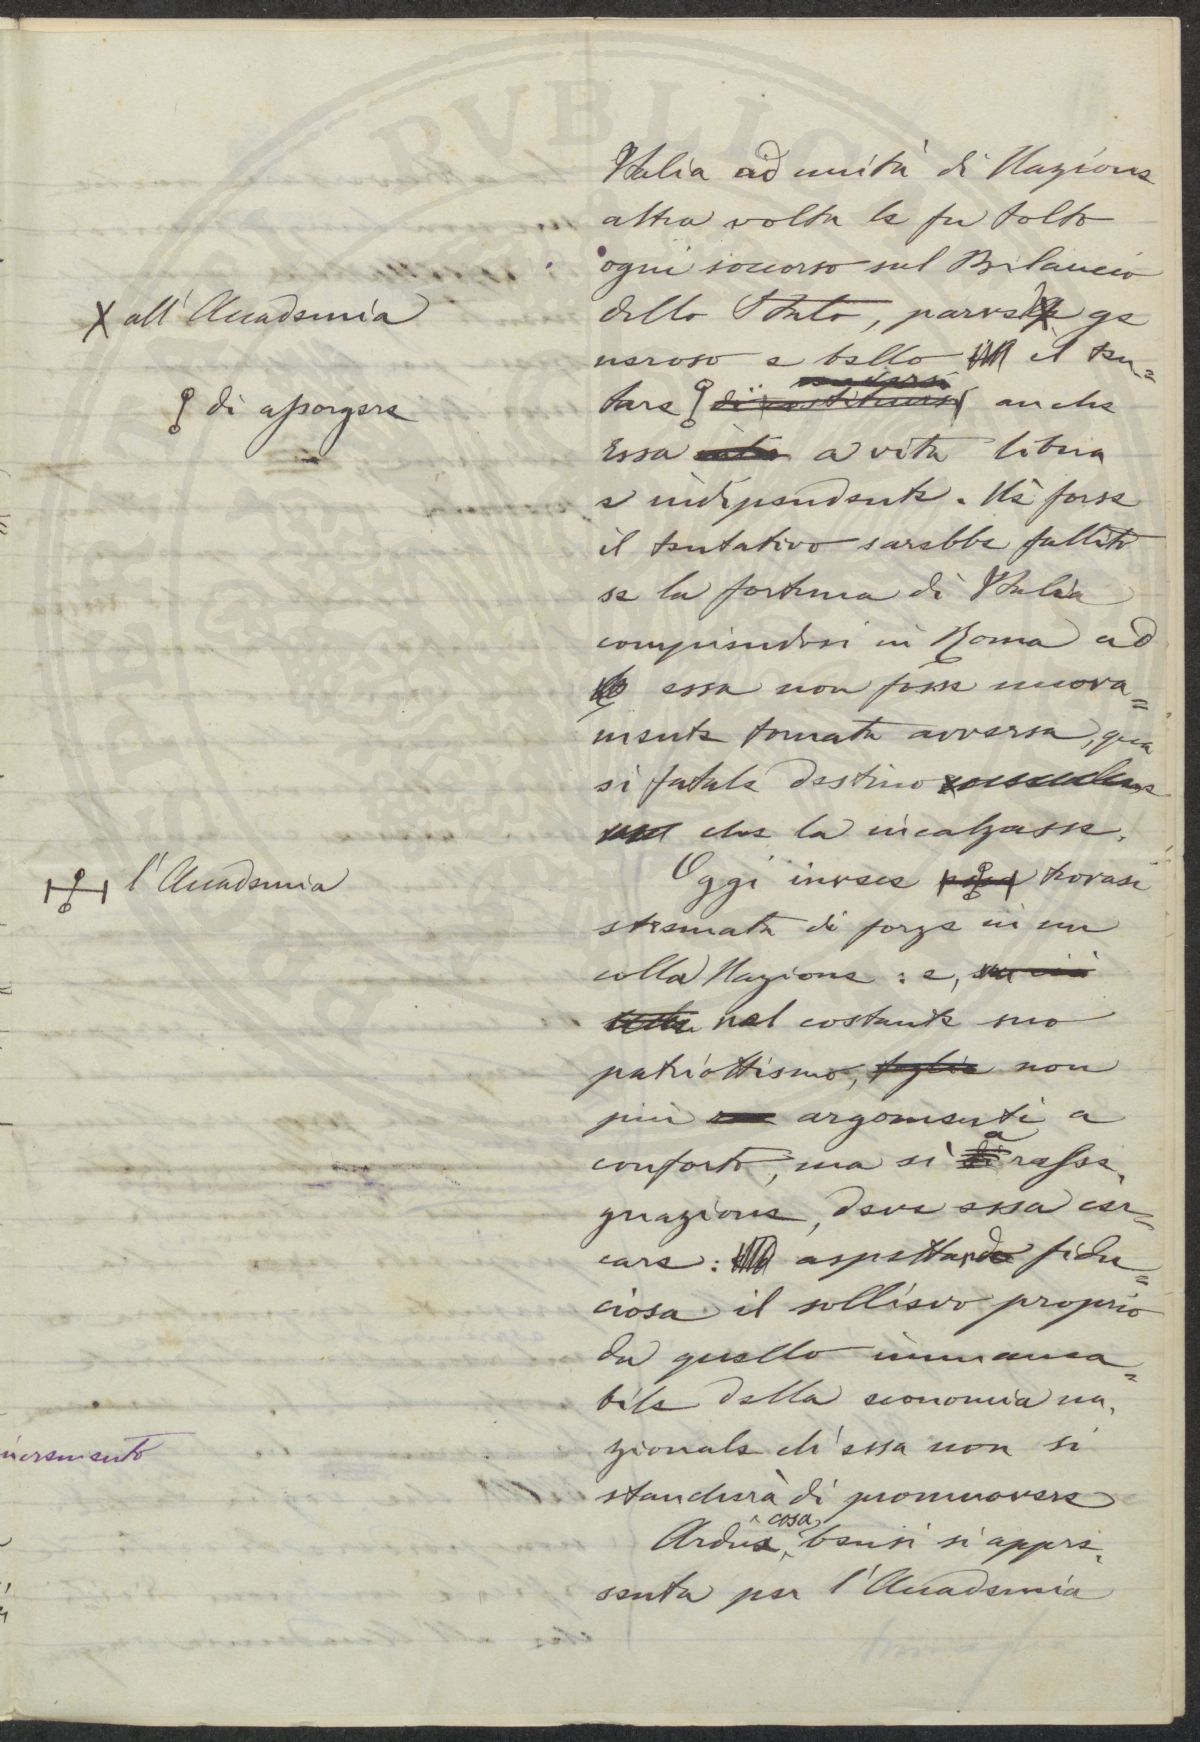 Italia ad unità di Nazione
altra volta le fu tolto
ogni soccorso sul Bilancio
X all'Accademia
dello Stato, parve X ge
neroso e bello il ten=
di assorgere
tare anche
Essa a vita libera
e indipendente. Nè forse
il tentativo sarebbe fallito
se la fortuna di Italia
compiendosi in Roma ad
essa non fosse nuova=
mente tornata avversa, qua
si fatale destino
che la incalzasse.
l'Accademia
Oggi invece trovasi
stremata di forze in un
colla Nazione: e,
nel costante suo
patriottismo, non
più argomenti a
conforto, ma sì a rasse-
gnazione, deve essa cer=
care: aspettando fidu=
ciosa il sollievo proprio
da quello immanca=
bile della economia na-
zionale ch'essa non si
incremento
stancherà di promuovere
Ardua cosa, bensì si appre-
senta per l'Accademia